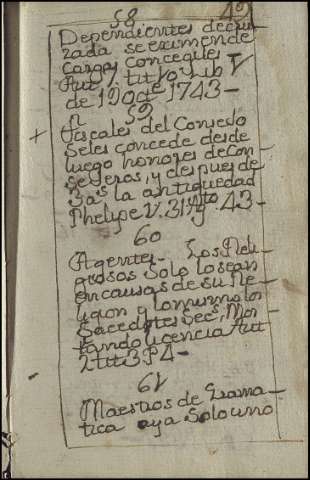 58 49
Dependientes de cru
zada se eximen de
cargas concegiles
Aut. 7. tit. 10. Lib V
de 19 de 1743-
59
+ Fiscales del Consejo
Seles concede desde
luego honores de Con-
segeros, y despues de
3 as. la antiguedad
Phelipe V. 31 43-
60
Agentes- Los Reli-
giosos Solo lo sean
en causas de su Re-
ligion y lo mismo los
Sacerdotes Secs. Mos-
trando licencia Aut
2. tit 3. P4-
61
Maestros de Grama-
tica aya Solo uno